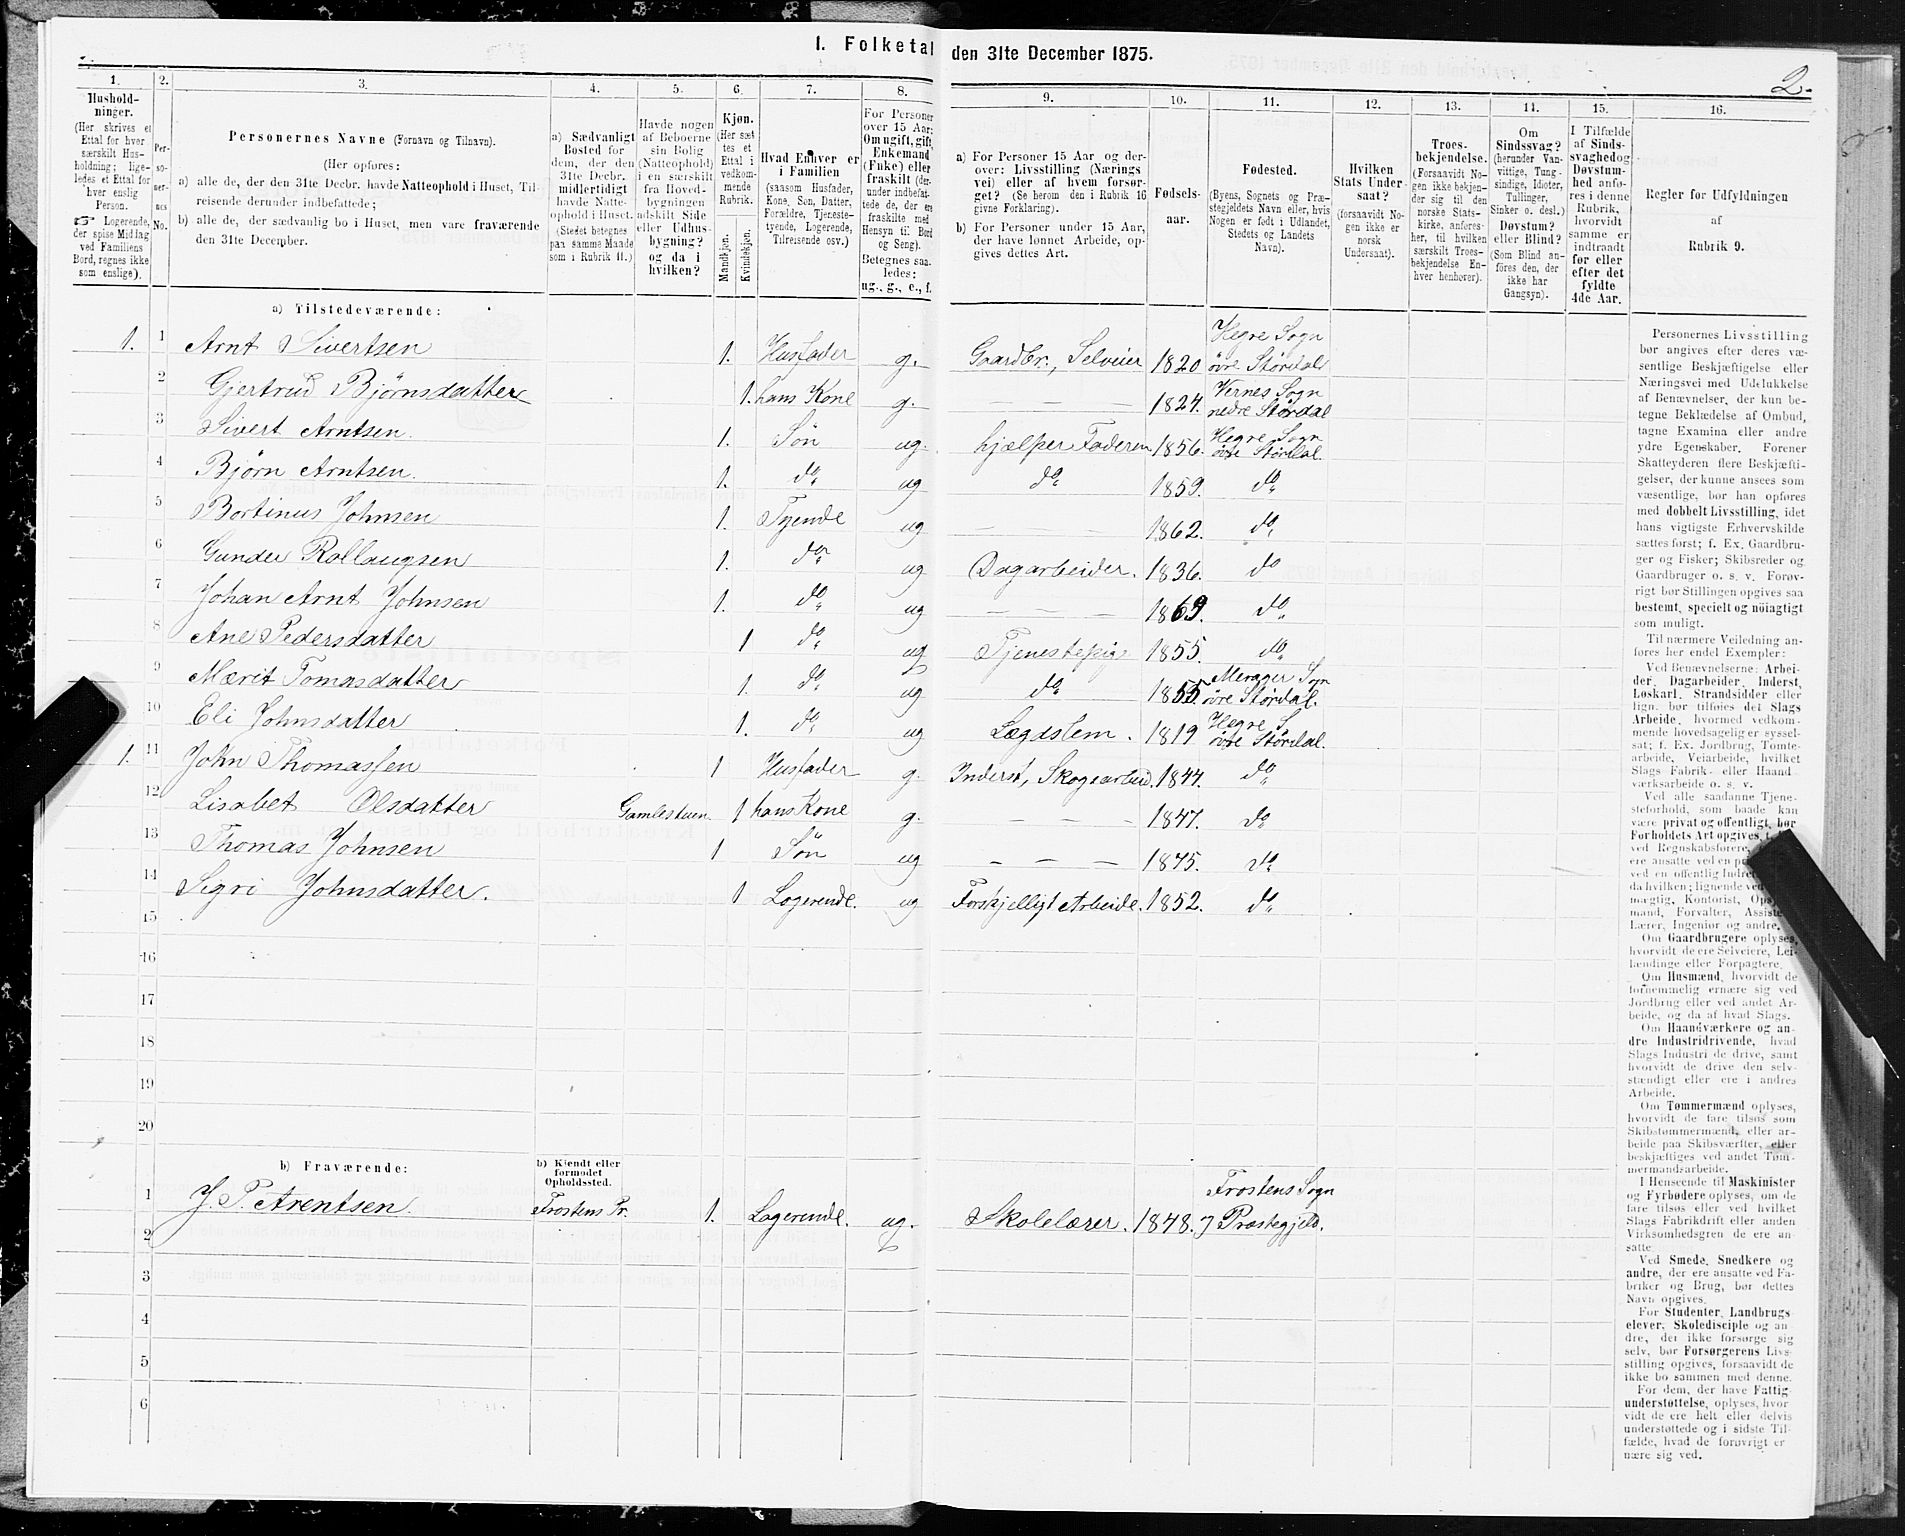 1. Folketal den 31te December 1875.
2.
1. 2. 3. 4. 5. 6. 7. 8. 9. 10. 11. 12. 13. 14. 15. 16.
Hushold-
ninger.
(Her skrives et
Ettal for hver
særskilt Hus-
holdning; lige-
ledes et Ettal for
hver enslig
Person.
Logerende,
der spise Middag
ved Familiens
Bord, regnes ikke
som enslige).
Per-
so-
ner-
nes
No.
Personernes Navne (Fornavn og Tilnavn).
(Her opføres:
a) alle de, der den 31te Decbr. havde Natteophold i Huset, Til-
reisende derunder indbefattede;
b) alle de, der sædvanlig bo i Huset, men vare fraværende
den 31te December.
a) Sædvanligt
Bosted for
dem, der den
31te Decbr.
midlertidigt
havde Natte-
ophold i Huset.
(Stedet betegnes
paa samme Maade
som i Rubrik 11.)
Havde nogen
af Beboerne
sin Bolig
(Natteophold)
i en særskilt
fra Hoved-
bygningen
adskilt Side
eller Udhus-
bygning?
og da i
hvilken?
Kjøn.
(Her sæt-
tes et
Ettal i
vedkom-
mende
Rubrik.
Mandkjøn.
Kvindekjøn.
Hvad Enhver er
i Familien
(saasom Husfader,
Kone, Søn, Datter,
Forældre, Tjeneste-
tyende, Logerende,
Tilreisende osv.)
For Personer
over 15 Aar:
Om ugift, gift,
Enkemand
(Enke) eller
fraskilt (der-
under indbefat-
tede de, der ere
fraskilte med
Hensyn til Bord
og Seng).
Betegnes saa-
ledes:
ug., g., e., f.
a) For Personer 15 Aar og der-
over: Livsstilling (Nærings-
vei) eller af hvem forsør-
get? (Se herom den i Rubrik 16
givne Forklaring).
b) For Personer under 15 Aar,
der have lønnet Arbeide, op-
gives dettes Art.
Fødsels-
aar.
Fødested.
(Byens, Sognets og Præ-
stegjeldets Navn eller, hvis
Nogen er født i Udlandet,
Stedets og Landets
Navn).
Hvilken
Stats Under-
saat?
(forsaavidt No-
gen ikke er
norsk
Undersaat).
Troes-
bekjendelse.
(Forsaavidt No-
gen ikke bekjen-
der sig til den
norske Stats-
kirke, anføres-
her, til hvilken
særskilt Troes-
bekjendelse En-
hver henhører).
Om
Sindssvag?
(herunder Van-
vittige, Tung-
sindige, Idioter,
Tullinger,
Sinker o. desl.)
Døvstum?
eller Blind?
(Som Blind an-
føres den, der
ikke har
Gangsyn).
I Tilfælde
af Sinds-
svaghed og
Døvstum-
hed anfø-
res i denne
Rubrik,
hvorvidt
samme er
indtraadt
før eller
efter det
fyldte
4de Aar.
Regler for Udfyldningen
af
Rubrik 9.
a) Tilstedeværende:
1. 1 Arnt Sivertsen 1. Husfader g. Gaardbr., Selveier 1820 Hegre Sogn øvre Størdal
2 Gjertrud Bjørnsdatter 1. hans Kone g. — — — 1824. Vernes Sogn nedre Størdal
3 Sivert Arntsen. 1. Søn ug. hjælper Faderen 1856. Hegre Sogn øvre Størdal.
4 Bjørn Arntsen. 1. do ug do 1859. do
5 Bortinus Johnsen 1. Tyende ug — — — 1862. do
6 Gunder Rollaugsen 1. do ug Dagarbeider. 1836. do
7 Johan Arnt Johnsen 1. do ug — — — 1869. do
8 Ane Pedersdatter 1 do ug Tjenestepige 1855. do
9 Mærit Tomasdatter 1. do ug do 1855. Merager Sogn øvre Størdal.
10 Eli Johnsdatter 1. do ug Lægdslem. 1819 Hegre S. øvre Størdal.
1. 11 John Thomassen 1 Husfader g. Inderst, Skogsarbeid. 1844. do
12 Lisabet Olsdatter Gamlestuen 1 hans Kone g. — — — 1847. do
13 Thomas Johnsen 1 Søn ug — — — 1875. do
14 Sigri Johnsdatter. 1 Logerende. ug Forskjelligt Arbeide. 1852. do
15
16
17
18
19
20
b) Fraværende:
b) Kjendt eller
formodet
Opholdssted.
1 J. P. Arentsen. Frostens Pr. 1. Logerende. ug. Skolelærer. 1848. Frostens Sogn
og Præstegjeld.
2
3
4
5
6
Personernes Livsstilling
bør angives efter deres væ-
sentlige Beskjæftigelse eller
Næringsvei med Udelukkelse
af Benævnelser, der kun be-
tegne Beklædelse af Ombud,
tagne Examina eller andre
ydre Egenskaber. Forener
Skatteyderen flere Beskjæfti-
gelser, der kunne ansees som
væsentlige, bør han opføres
med dobbelt Livsstilling, idet
hans vigtigste Erhvervskilde
sættes først; f. Ex. Gaardbru-
ger og Fisker; Skibsreder og
Gaardbruger o. s. v. Forøv-
rigt bør Stillingen opgives saa
bestemt, specielt og nöiagtigt
som muligt.
Til nærmere Veiledning an-
føres her endel Exempler:
Ved Benævnelserne: Arbei-
der, Dagarbeider, Inderst,
Løskarl, Strandsidder eller
lign. bør tilføies det Slags
Arbeide, hvormed vedkom-
mende hovedsagelig er syssel-
sat; f. Ex. Jordbrug, Tomte-
arbeide, Veiarbeide, hvilket
Slags Fabrik- eller Haand-
værksarbeide o. s. v.
Ved alle saadanne Tjene-
steforhold, som baade kan
være privat og offentligt, bør
Forholdets Art opgives,
ved Regnskabsførere,
ere ansatte ved en
ved en offentlig
da hvilken; lignende ved
mægtig, Kontorist,
mand, Forvalter,
Lærer, Ingeniør og andre.
Om Gaardbrugere oplyses,
hvorvidt de ere Selveiere, Lei-
lændinge eller Forpagtere.
Om Husmænd, hvorvidt de
fornemmelig ernære sig ved
Jordbrug eller ved andet Ar-
beide, og da af hvad Slags.
Om Haandværkere og an-
dre Industridrivende, hvad
Slags Industri de drive, samt
hvorvidt de drive den selv-
stændigt eller ere i andres
Arbeide.
Om Tømmermænd oplyses,
hvorvidt de fare tilsøs som
Skibstømmermænd, eller ar-
beide paa Skibsværfter, eller
beskjæftiges ved andet Tøm-
mermandsarbeide.
I Henseende til Maskinister
og Fyrbødere oplyses, om de
fare tilsøs eller ved hvilket
Slags Fabrikdrift eller anden
Virksomhedsgren de ere an-
satte.
Ved Smede, Snedkere og
andre, der ere ansatte ved Fa-
briker og Brug, bør dettes
Navn opgives.
For Studenter, Landbrugs-
elever, Skoledisciple og an-
dre, der ikke forsørge sig
selv, bør Forsørgerens Livs-
stilling opgives, forsaavidt de
ikke bo sammen med denne.
For dem, der have Fattig-
understøttelse, oplyses, hvor-
vidt de ere helt eller delvis
understøttede og i sidste Til-
fælde, hvad de forøvrigt er-
nære sig ved.